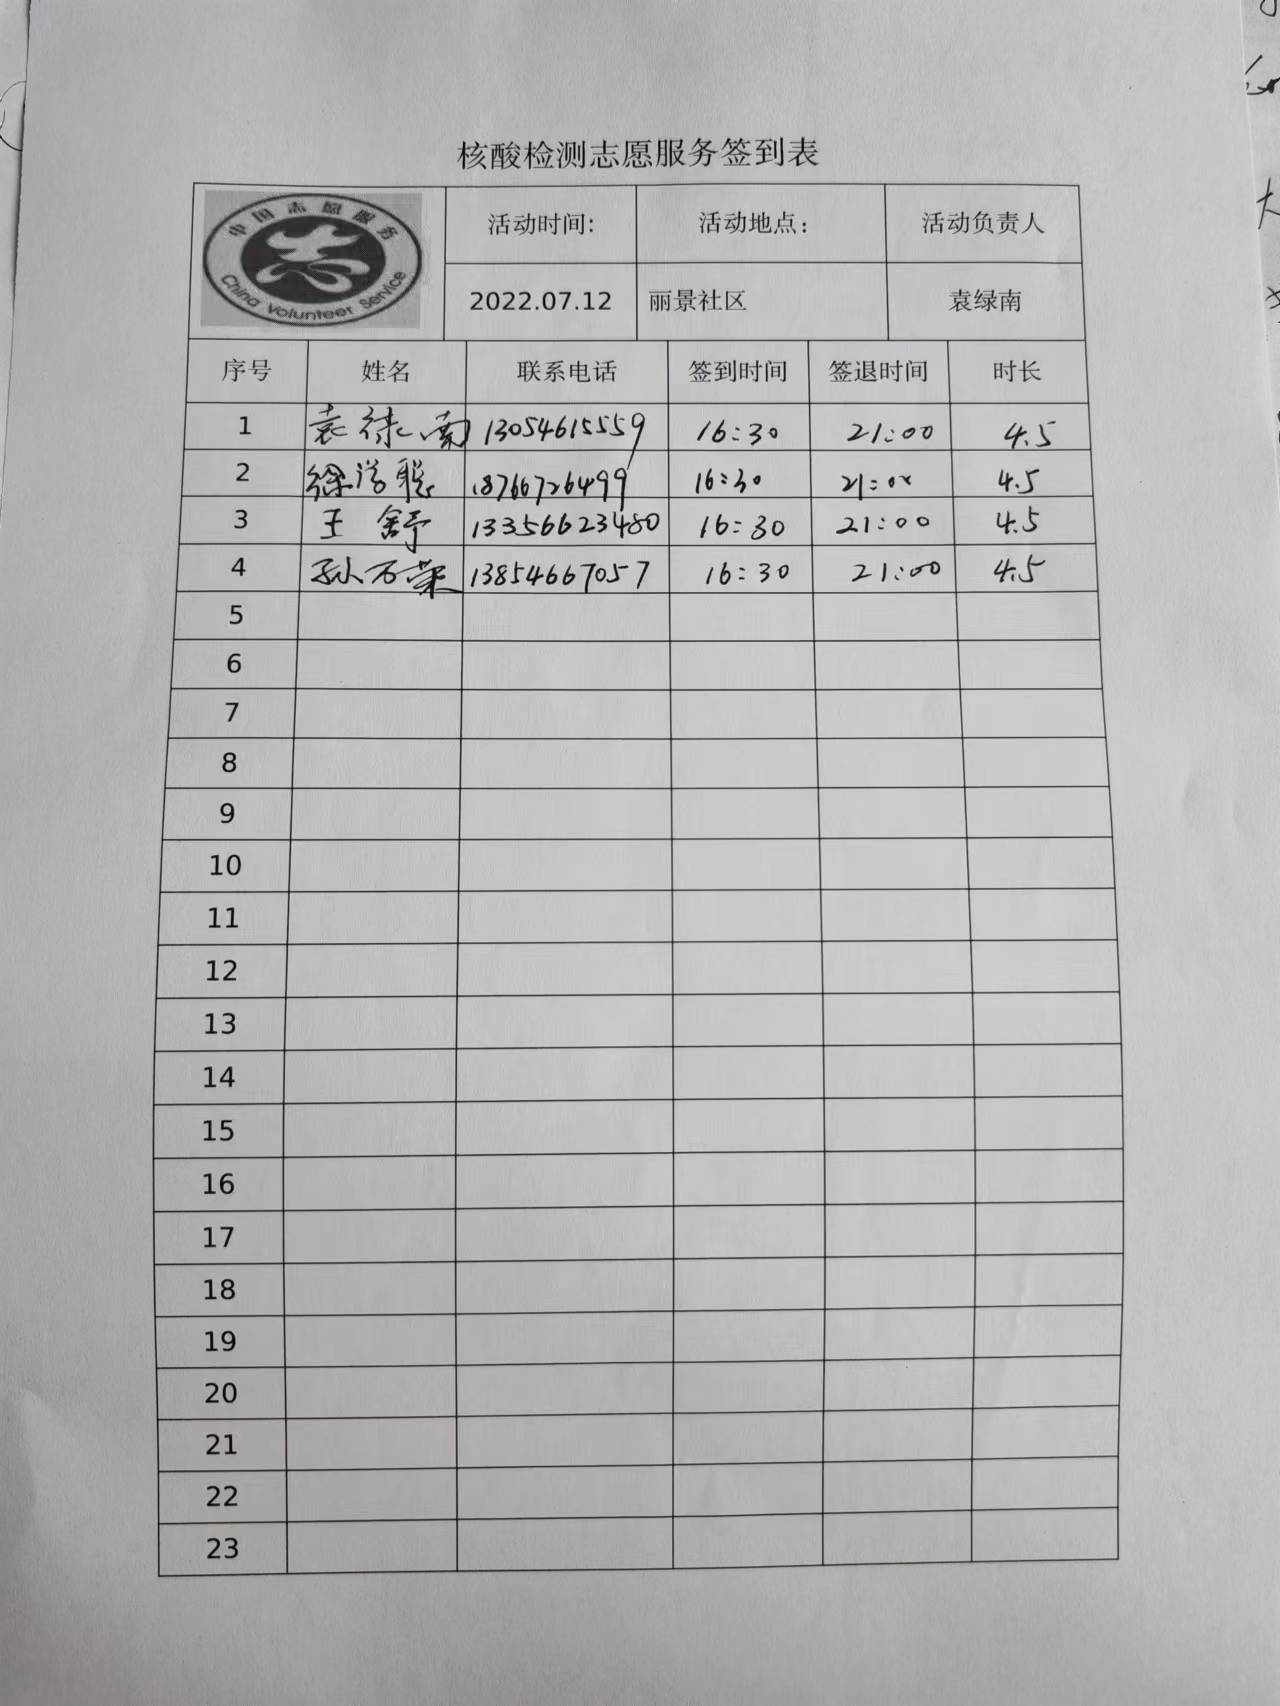 核酸检测志愿服务签到表
中国志愿服务
China Volunteer Service
活动时间: 活动地点: 活动负责人
2022.07.12 丽景社区 袁绿南
序号 姓名 联系电话 签到时间 签退时间 时长
1 袁绿南 13054615559 16:30 21:00 4.5
2 徐学聪 18766726499 16:30 21:00 4.5
3 王舒 13356623480 16:30 21:00 4.5
4 孙万荣 13854667057 16:30 21:00 4.5
5
6
7
8
9
10
11
12
13
14
15
16
17
18
19
20
21
22
23